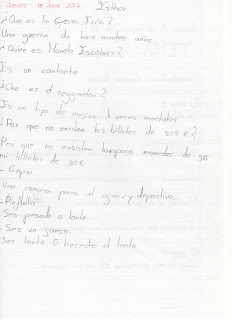 Jueves 15 Junio 2017 Esther
¿Que es la Guerra Fria?
Una guerra de hace muchos años
¿Quien es Manolo Escobar?
Es un cantante
¿Que es el reggaeton?
Es un tipo de musica a veces machista
¿Por que no existen los billetes de 30€?
Por que no existen tampoco monedas de 3€
ni billetes de 30€
- Gapio
Una camara para el agua y deportiva.
- Piaflata
- Ser pesado o tonto
- Ser un ganso.
Ser tonto. O hacerse el tonto